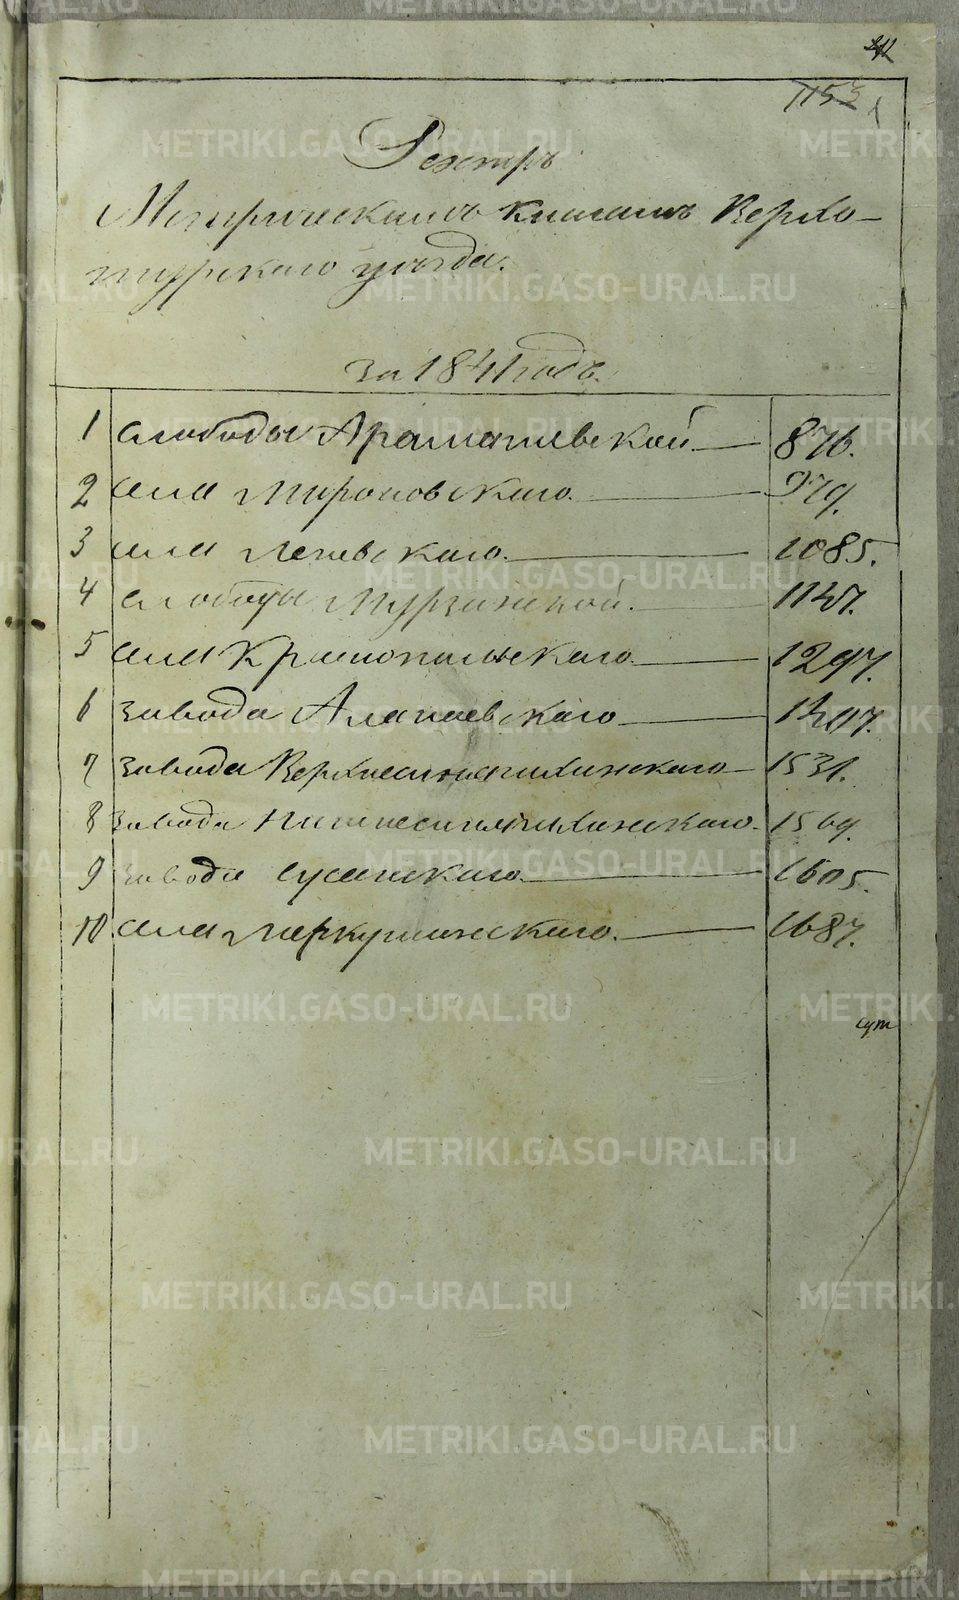 1153
Реэстръ
Метрическимъ книгамъ Верхо-
турскаго уѣзда.
за 1841 годъ.
1 слободы Арамашевской 876.
2 села Мироновскаго 979.
3 села Леневскаго 1085.
4 слободы Мурзинской. 1147.
5 села Краснопольскаго 1297.
6 завода Алапаевскаго 1407.
7 завода Верхнесинячихинскаго 1531.
8 завода Нижнесинячихинскаго. 1569.
9 завода Сусанскаго 1605.
10 села Меркушинскаго. 1687.
METRIKI.GASO-URAL.RU